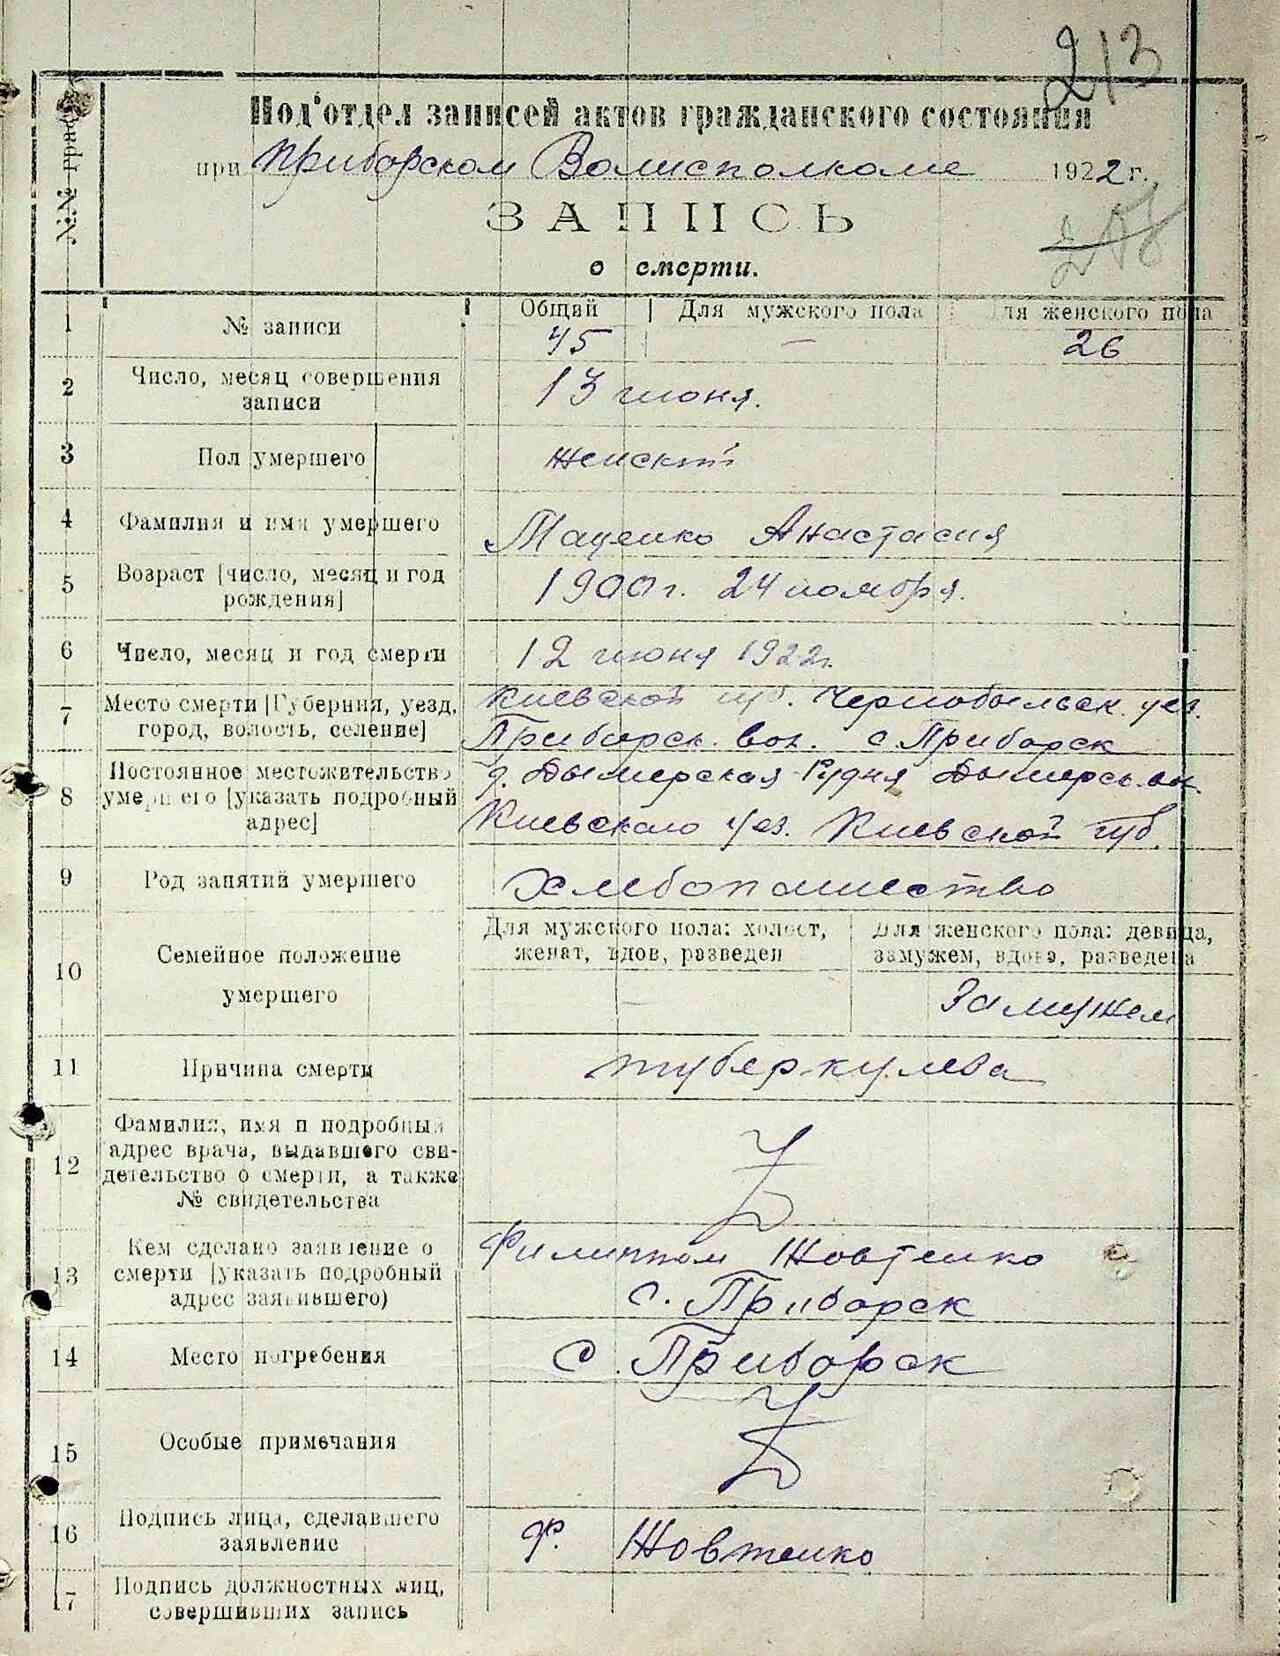 213
Под'отдел записей актов гражданского состояния
при Приборском Волисполкоме 1922 г.
ЗАПИСЬ
о смерти.
№№ граф
1 № записи Общий Для мужского пола Для женского пола
45 — 26
2 Число, месяц совершения записи 13 июня.
3 Пол умершего Женский
4 Фамилия и имя умершего Маценко Анастасия
5 Возраст [число, месяц и год рождения] 1900 г. 24 ноября.
6 Число, месяц и год смерти 12 июня 1922 г.
7 Место смерти [Губерния, уезд, город, волость, селение] Киевской губ. Чернобыльск. уез.
Приборск. вол. с Приборск
8 Постоянное местожительство умершего [указать подробный адрес] д. Дымерская Рудня Дымерск. вол.
Киевского уез. Киевской губ.
9 Род занятий умершего Хлебопашество
10 Семейное положение умершего Для мужского пола: холост, женат, вдов, разведен Для женского пола: девица, замужем, вдова, разведена
— Замужем
11 Причина смерти туберкулеза
12 Фамилия, имя и подробный адрес врача, выдавшего свидетельство о смерти, а также № свидетельства
13 Кем сделано заявление о смерти [указать подробный адрес заявившего) Филиппом Жовтенко
с. Приборск
14 Место погребения с. Приборск
15 Особые примечания
16 Подпись лица, сделавшего заявление Ф. Жовтенко
17 Подпись должностных лиц, совершивших запись